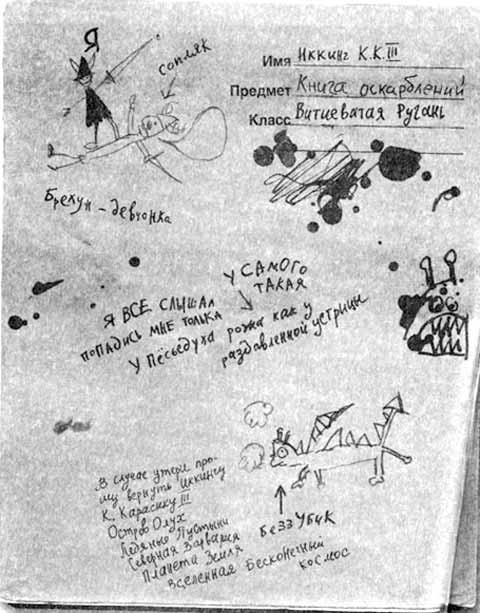 Я
СОПЛЯК
Имя Иккинг К.К. III
Предмет Книга оскарблений
Класс Витиеватая Ругань
Брехун-девчонка
У САМОГО
ТАКАЯ
Я ВСЕ СЛЫШАЛ
ПОПАДИСЬ МНЕ ТОЛЬКО
У Пёсьедуха рожа как у
раздавленной устрицы
В случае утери про-
шу вернуть Иккингу
К. Карасику III
Остров Олух
Ледяные Пустыни
Северная Варвария
Планета Земля
Вселенная Бесконечный
космос
БеЗЗУБИК